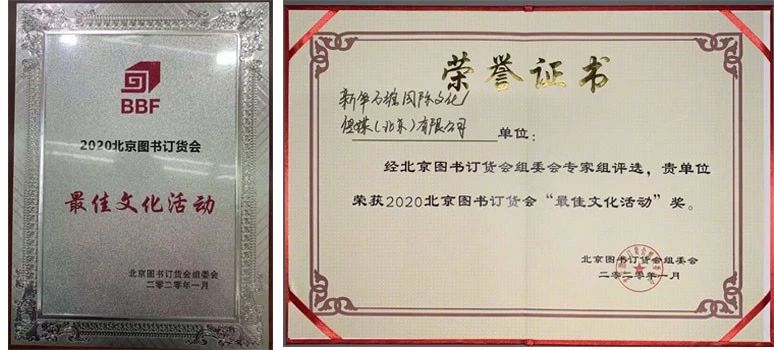 BBF
2020北京图书订货会
最佳文化活动
北京图书订货会组委会
二零二零年一月
荣誉证书
新华万维国际文化
传媒(北京)有限公司
单位:
经北京图书订货会组委会专家组评选,贵单位
荣获2020北京图书订货会“最佳文化活动”奖。
北京图书订货会组委会
二零二零年一月